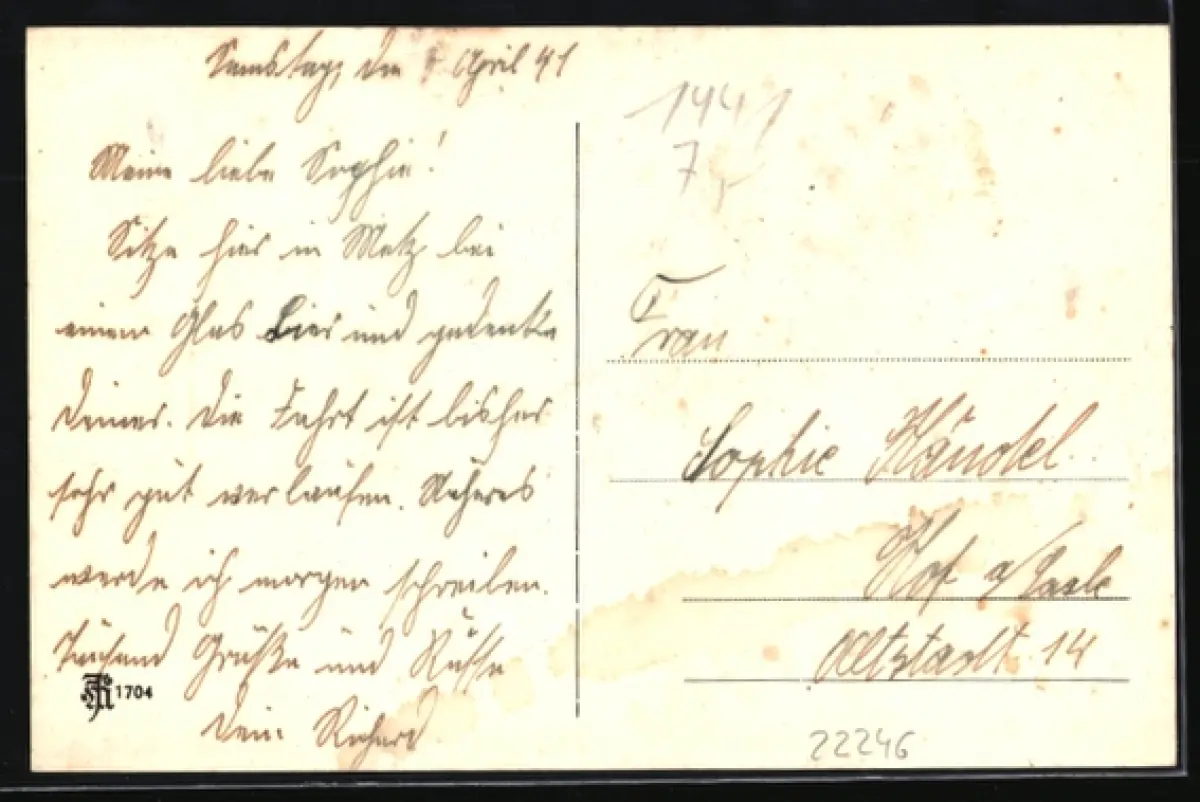 Samstag, den April 41
Meine liebe Sophie!
Sitze hier in Metz bei
einem Glas Bier und gedenke
Deiner. Die Fahrt ist bisher
sehr gut verlaufen. Näheres
werde ich morgen schreiben.
Tausend Grüße und Küsse
Dein Richard
1704
1941
7,-
Frau
Sophie Händel
Hof a/Saale
Altstadt 14
22246